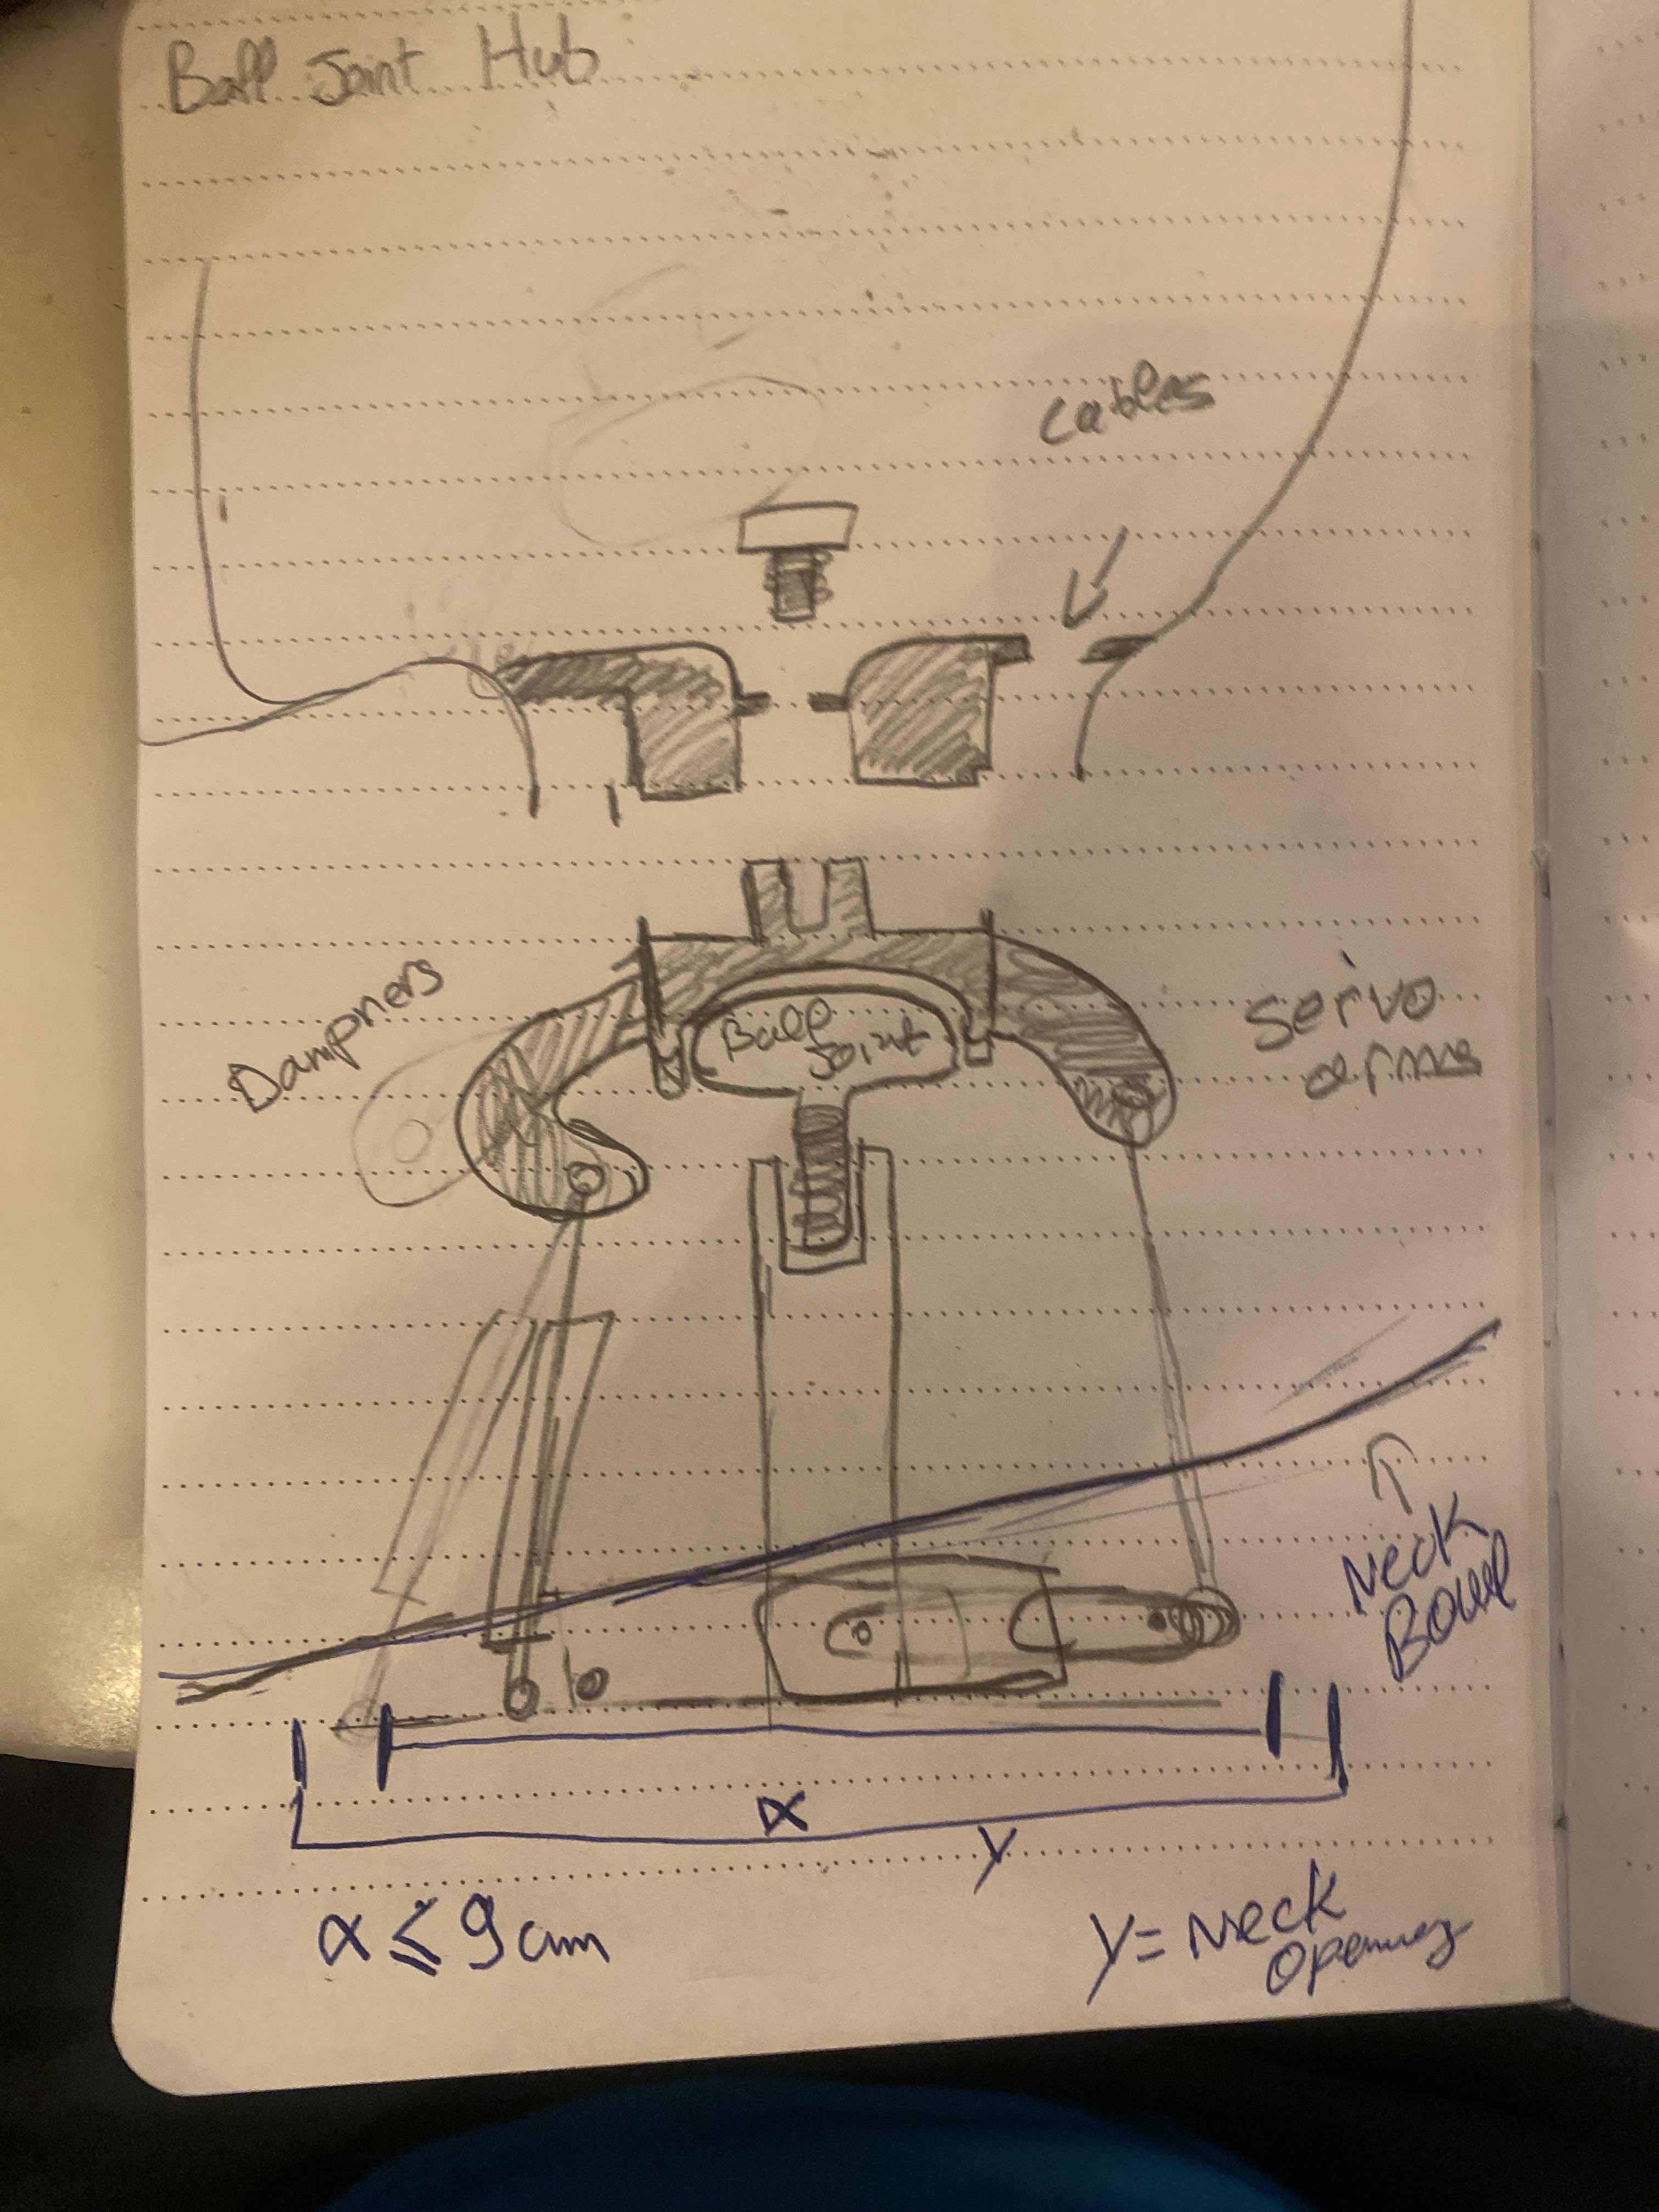 Ball Joint Hub
cables
Dampners
Ball
Joint
servo
arms
Neck
Bowl
α
y
α ≤ 9cm
y = Neck
opening